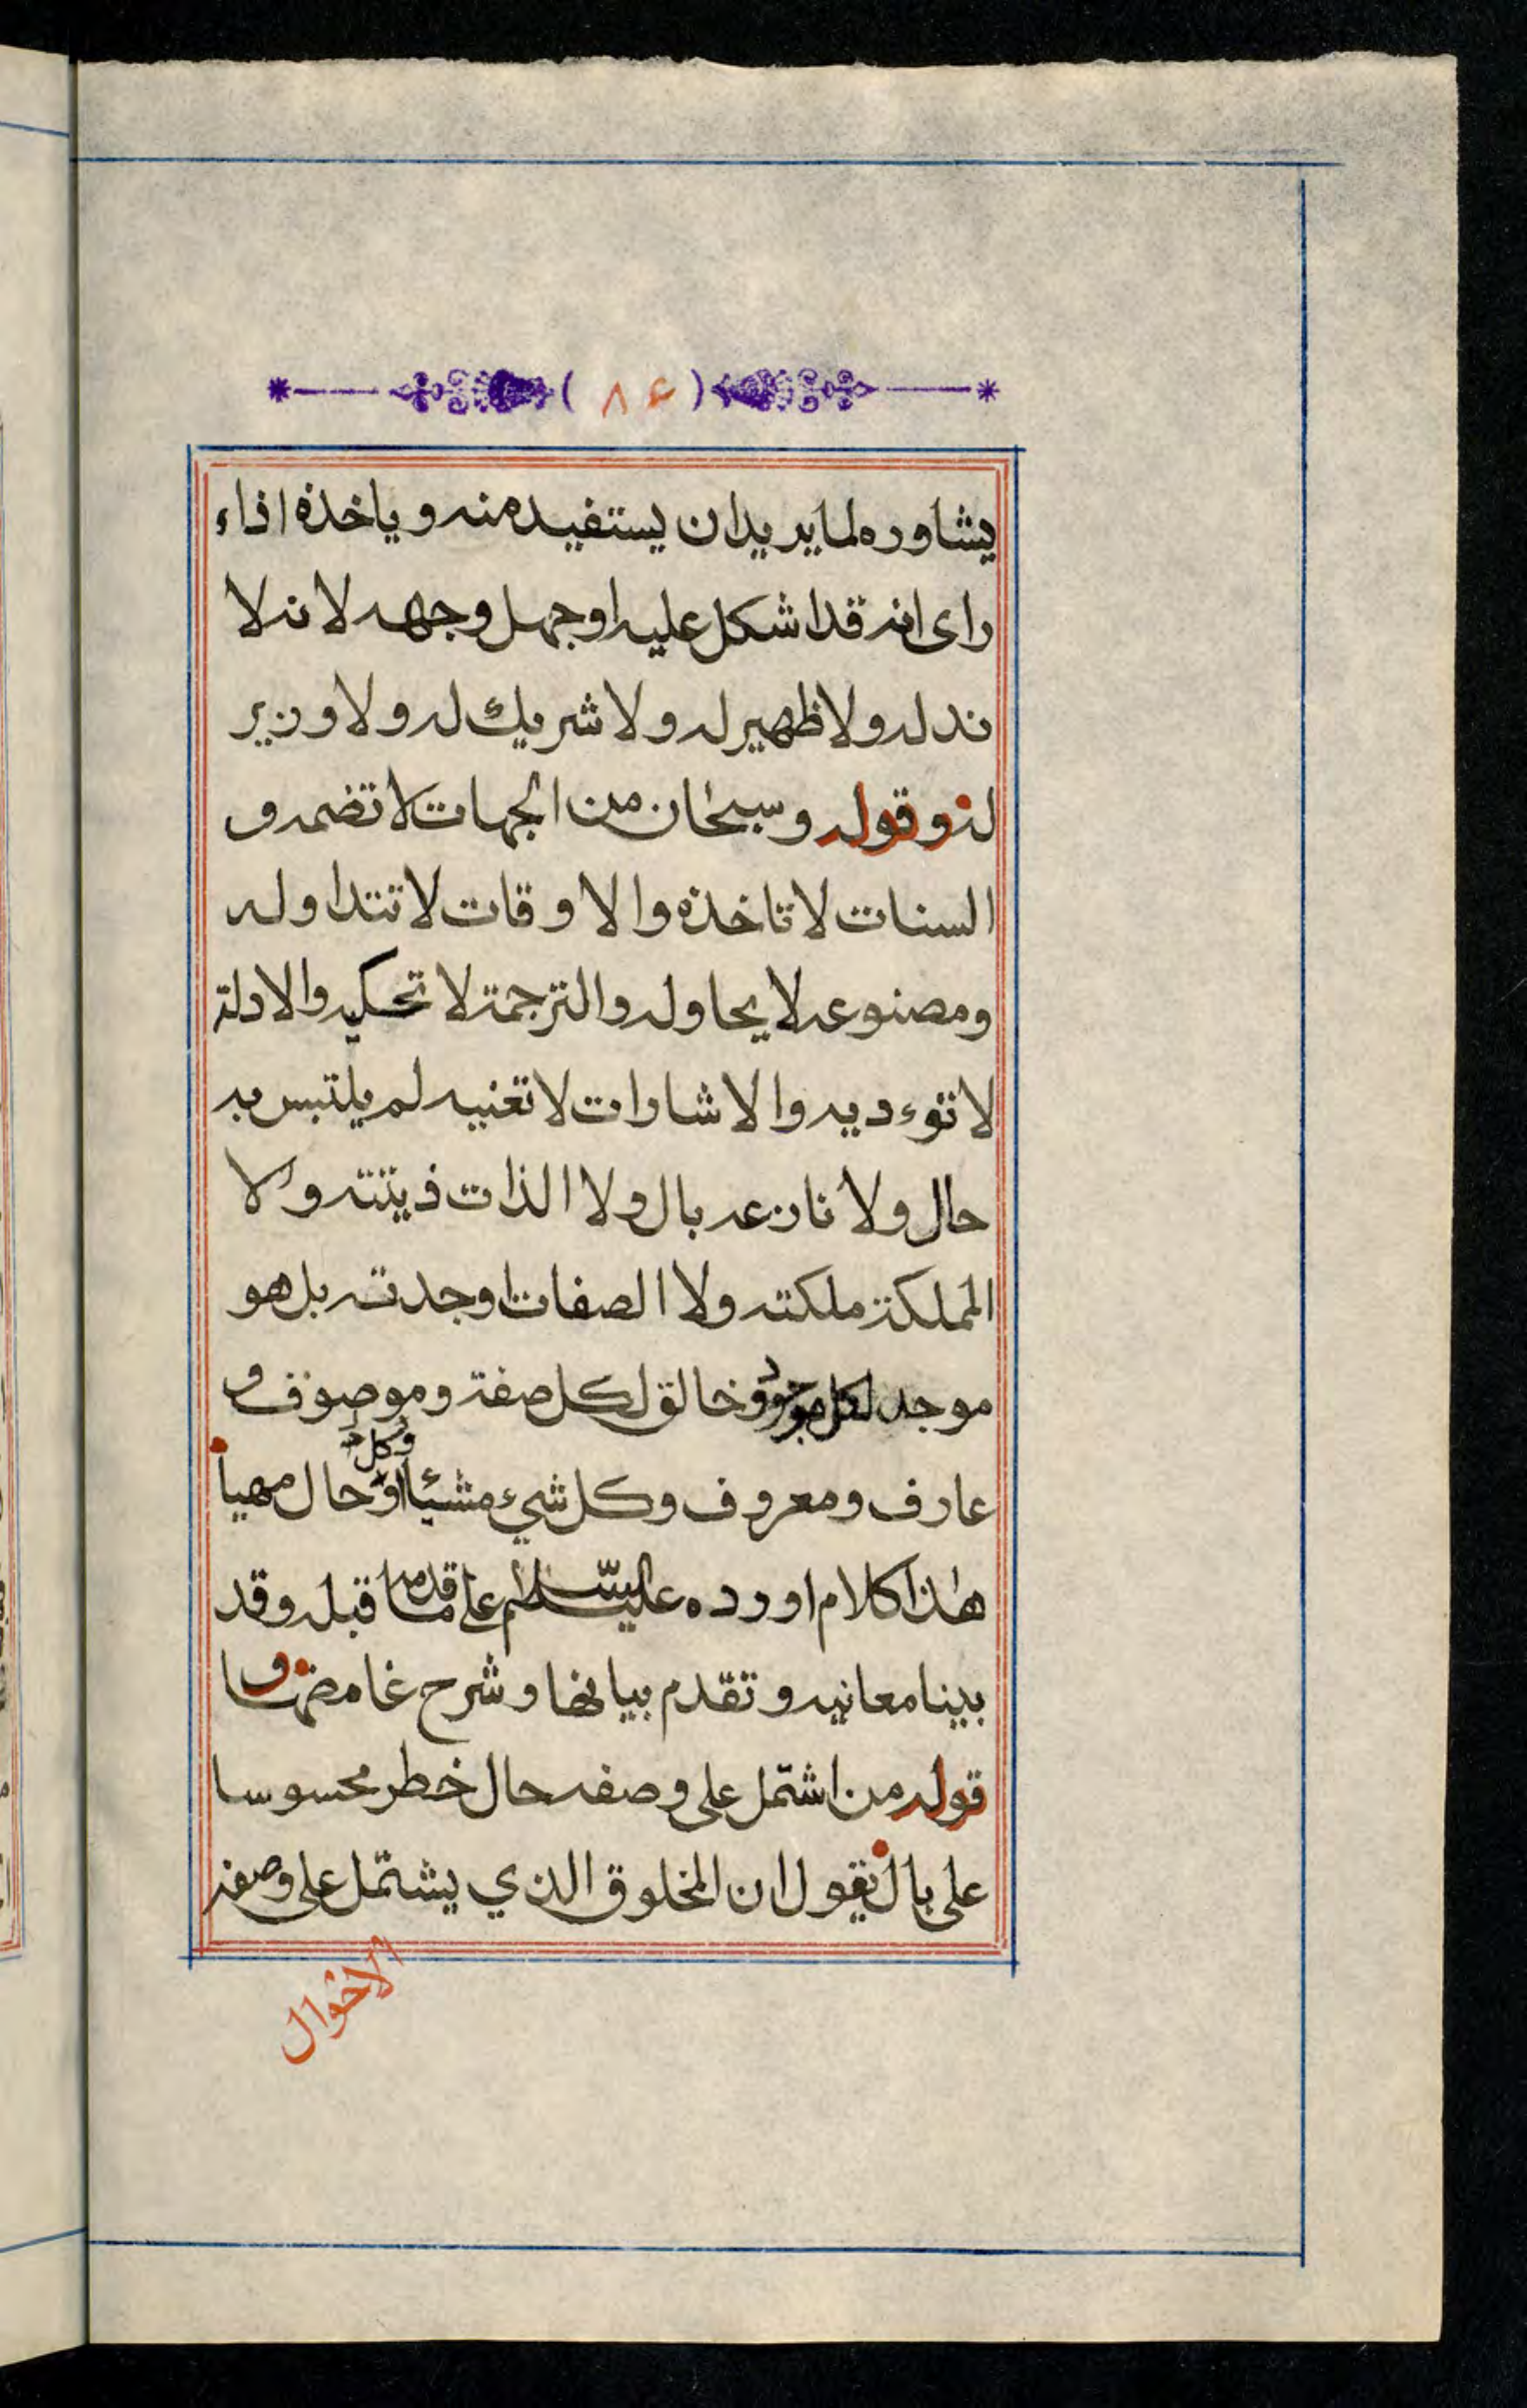 ( ٨٤ )
يشاوره لما يريد ان يستفيده منه وياخذه اذاء
راى انه قد اشكل عليه او جهل وجهه لانه لا
ند له ولا ظهير له ولا شريك له ولا وزير
له وقوله وسبحان من الجهات لا تضمه و
السنات لا تاخذه والاوقات لا تتداوله
ومصنوعه لا يحاوله والترجمة لا تحكيه والادلة
لا توءديه والاشارات لا تعنيه لم يلتبس به
حال ولا نازعه بال ولا الذات ذيتته ولا
المملكة ملكته ولا الصفات اوجدته بل هو
موجد لكل موجود وخالق لكل صفة وموصوف و
عارف ومعروف وكل شيء مشيأ وكل حال مهيأ
هذا كلام اورده عليه السلام على ما قدمه قبله وقد
بينا معانيه وتقدم بيانها وشرح غامضها و
قوله من اشتمل على وصفه حال خطر محسوسا
على بال نقول ان المخلوق الذي يشتمل على وصفه
الاحوال